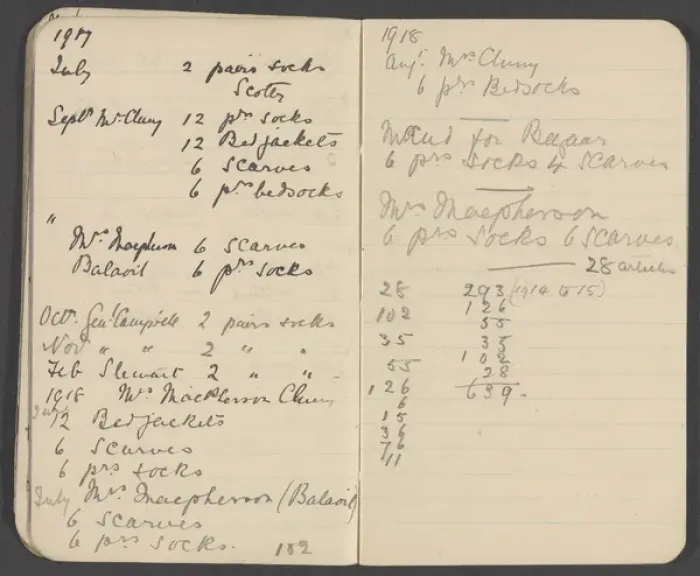 1917
July 2 pairs socks
Scotty
Sept. Mrs Cluny 12 prs socks
12 Bedjackets
6 Scarves
6 prs bedsocks
"
Mrs Macpherson 6 Scarves
Balavil 6 prs socks
Octr. Genl Campbell 2 pairs socks
Nov " " 2 " "
Feb Stewart 2 " "
1918 Mrs MacPherson Cluny
12 Bedjackets
6 Scarves
6 prs socks
July Mrs Macpherson (Balavil)
6 Scarves
6 prs Socks. 102
1918
Augt. Mrs Cluny
6 prs Bedsocks
Maud for Bazaar
6 prs Socks 4 Scarves
Mrs Macpherson
6 prs Socks 6 Scarves
28 articles
28 293 (1914 to 15)
102 126
55
35 35
102
55 28
126 639.
6
15
36
76
11